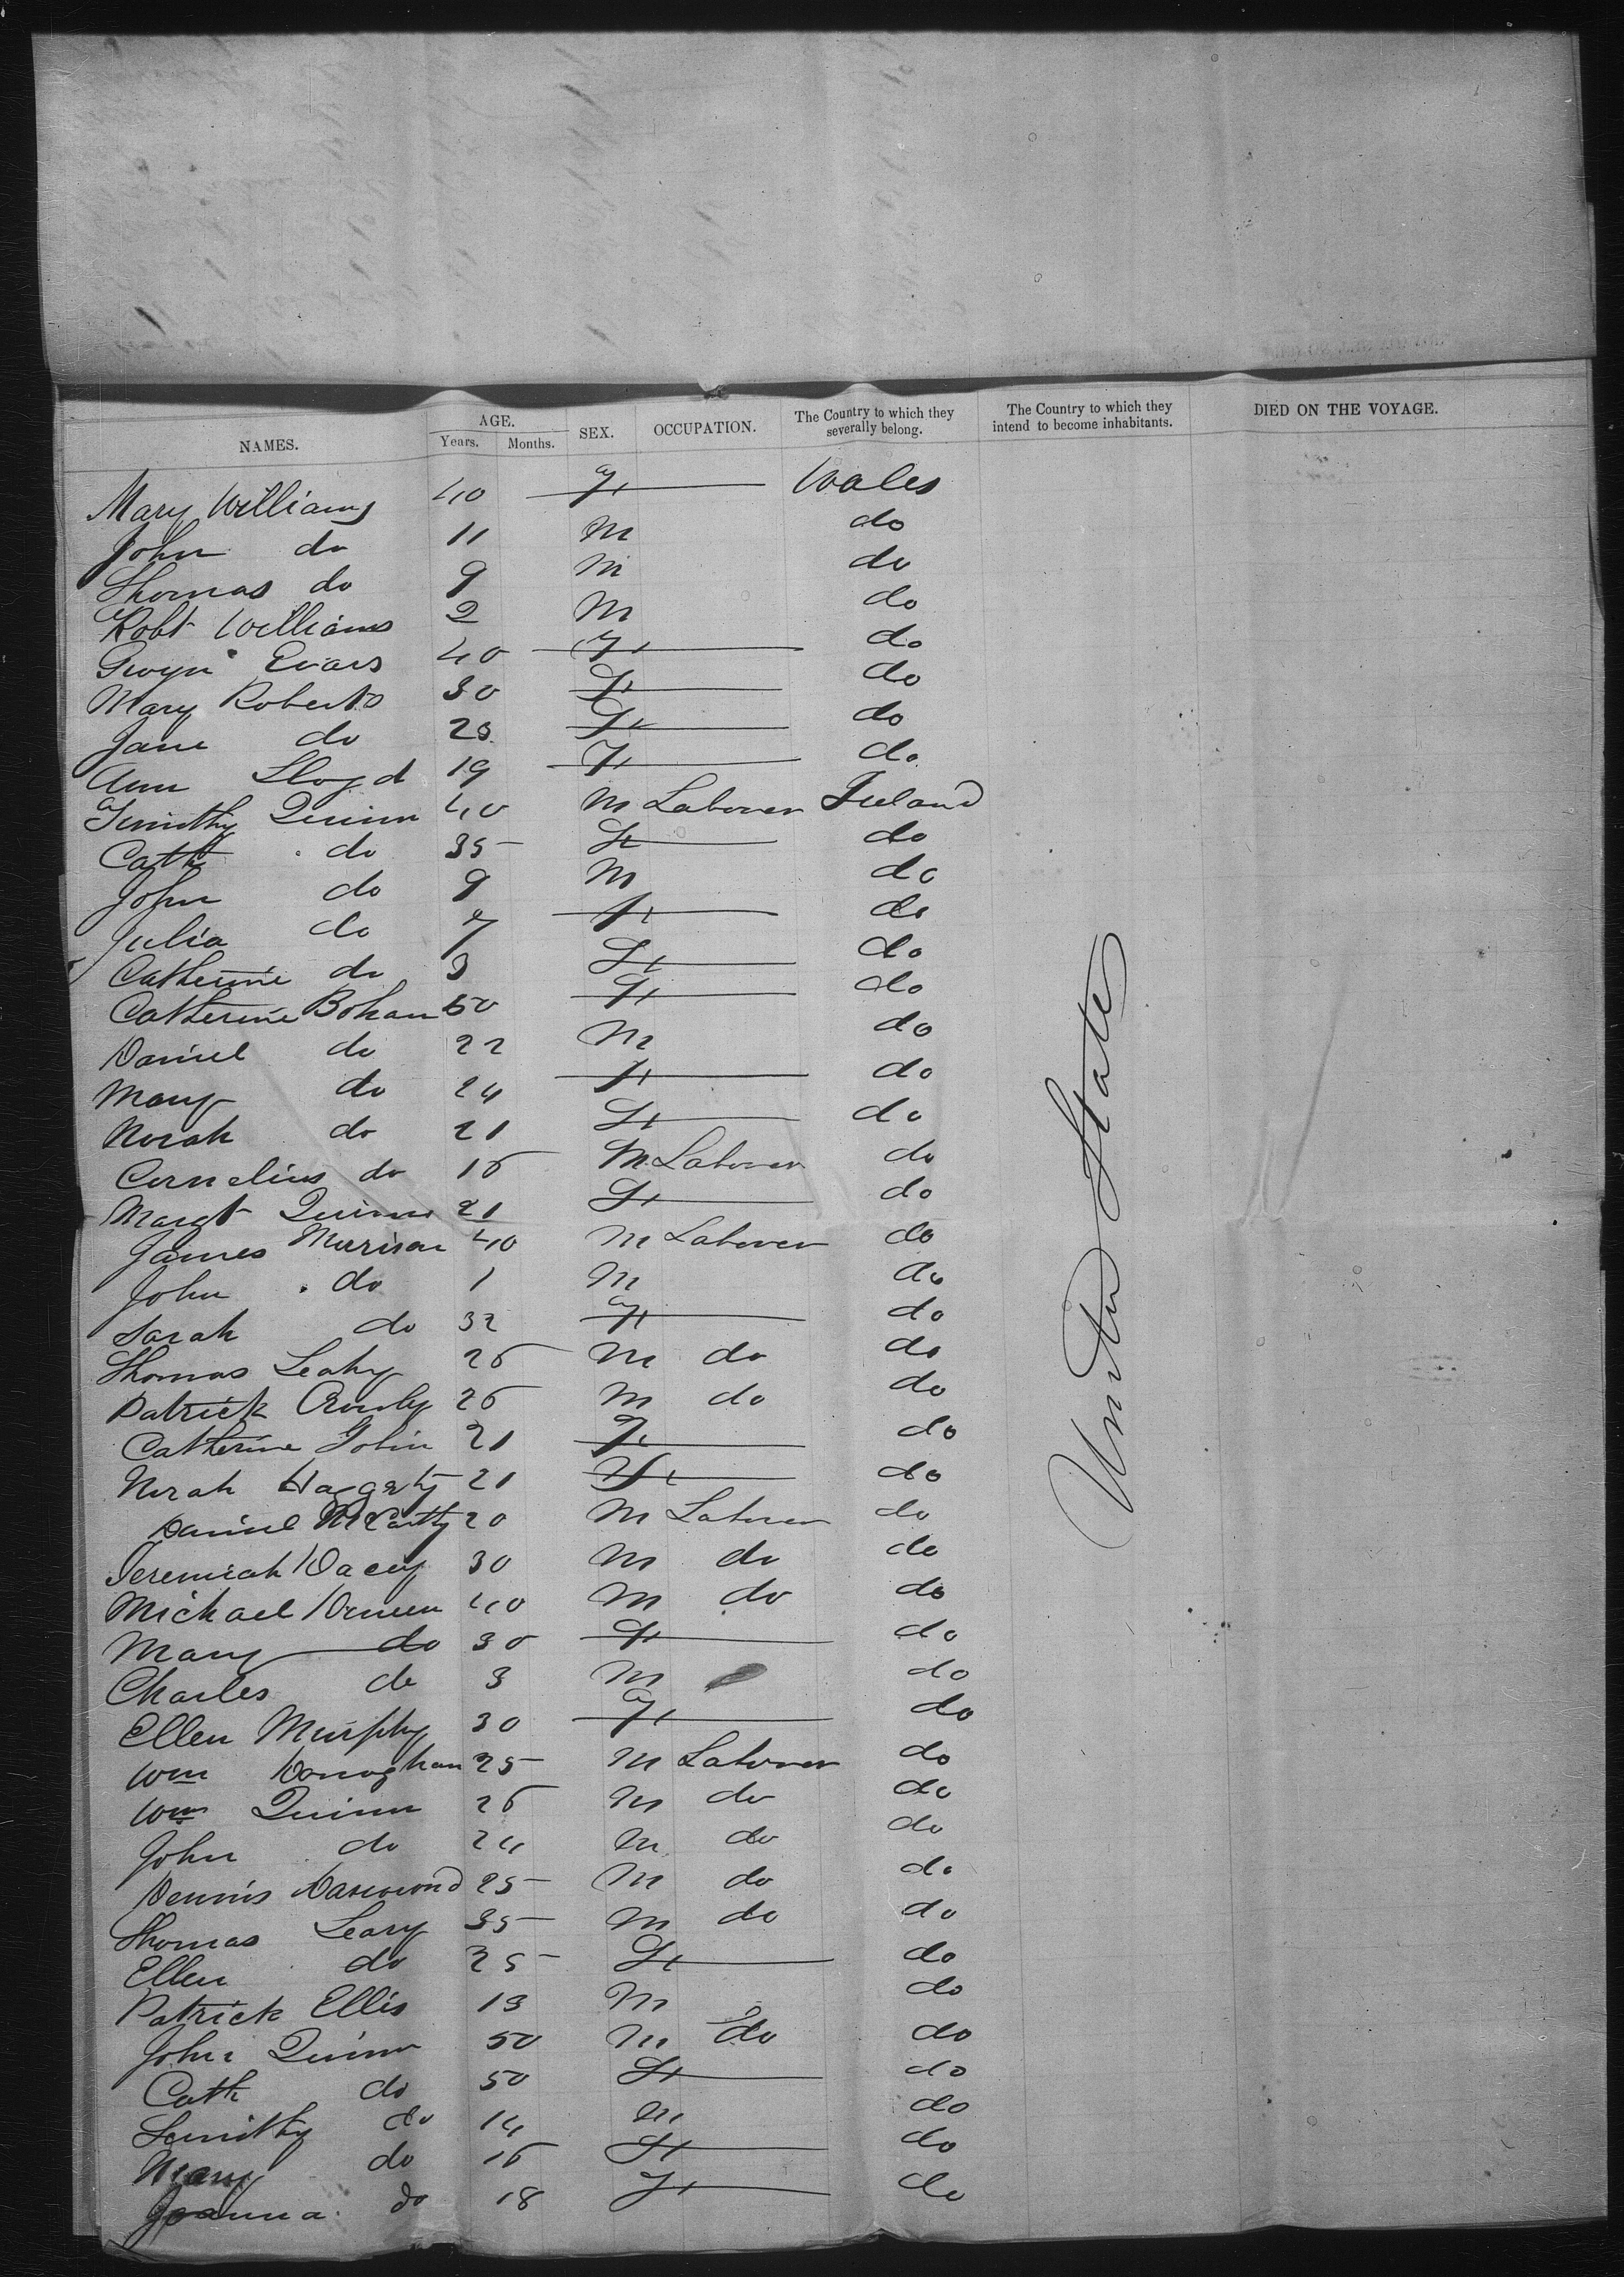 NAMES. AGE. Years. Months. SEX. OCCUPATION. The Country to which they severally belong. The Country to which they intend to become inhabitants. DIED ON THE VOYAGE.
Mary Williams 40 F Wales
John do 11 M do
Thomas do 9 M do
Robt Williams 2 M do
Gwyn Evans 40 F do
Mary Roberts 30 F do
Jane do 25 F do
Ann Lloyd 19 F do
Timothy Quinn 40 M Laborer Ireland
Cath do 35 F do
John do 9 M do
Julia do 7 F do
Catherine do 3 F do
Catherine Bohan 50 F do
Daniel do 22 M do
Mary do 24 F do
Norah do 21 F do
Cornelius do 16 M Laborer do
Margt Quinn 21 F do
James Morrison 40 M Laborer do
John do 1 M do
Sarah do 32 F do
Thomas Leahy 26 M do do
Patrick Crowly 26 M do do
Catherine Tobin 21 F do
Norah Haggerty 21 F do
Daniel McCarthy 20 M Laborer do
Jeremiah Dacey 30 M do do
Michael 40 M do do
Mary do 30 F do
Charles do 3 M do
Ellen Murphy 30 F do
Wm Donoghan 25 M Laborer do
Wm Quinn 26 M do do
John do 24 M do do
Dennis 25 M do do
Thomas Leary 35 M do do
Ellen do 25 F do
Patrick Ellis 13 M do
John Quinn 50 M do do
Cath do 50 F do
Timothy do 14 M do
Mary do 16 F do
Joanna do 18 F do
United States